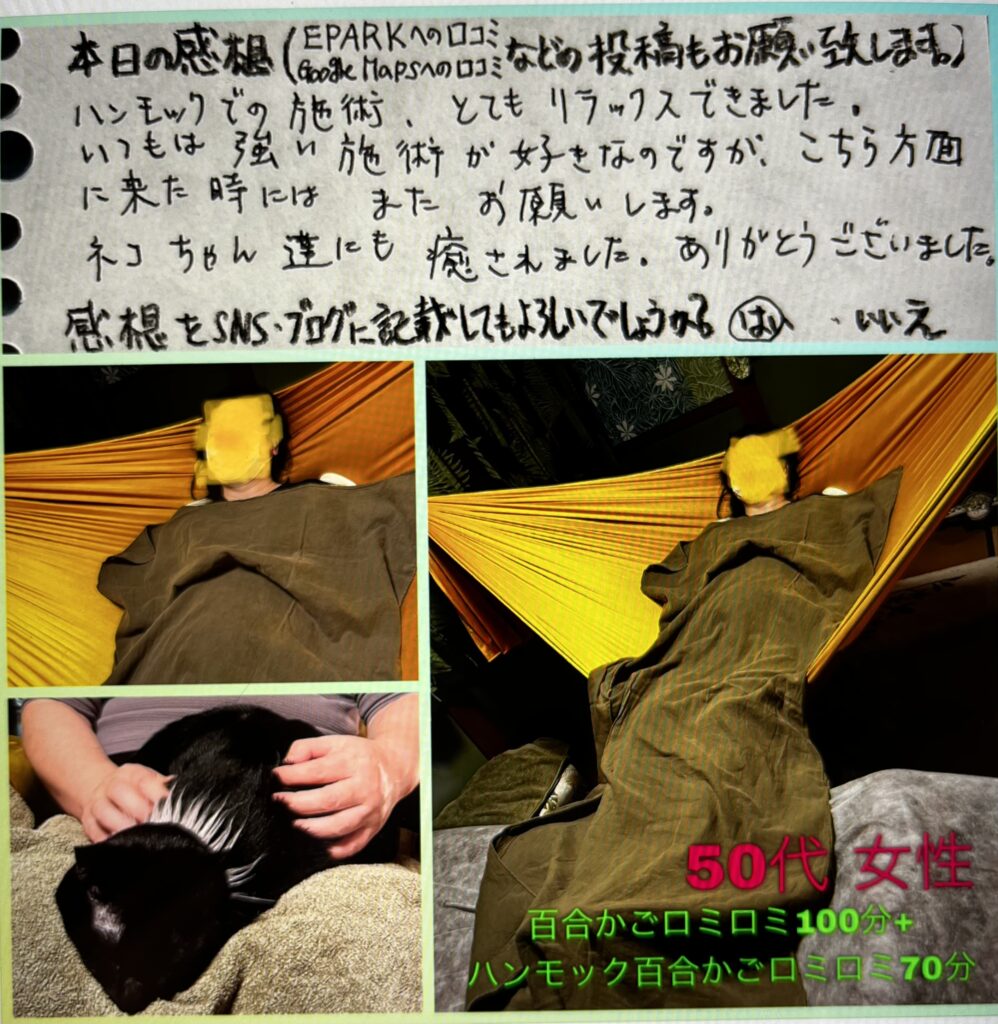 本日の感想(EPARKへの口コミ
Google Mapsへの口コミ
などの投稿もお願い致します。)
ハンモックでの施術、とてもリラックスできました。
いつもは強い施術が好きなのですが、こちら方面
に来た時にはまたお願いします。
ネコちゃん達にも癒されました。ありがとうございました。
感想をSNS・ブログに記載してもよろしいでしょうか? はい ・いいえ
50代 女性
百合かごロミロミ100分+
ハンモック百合かごロミロミ70分